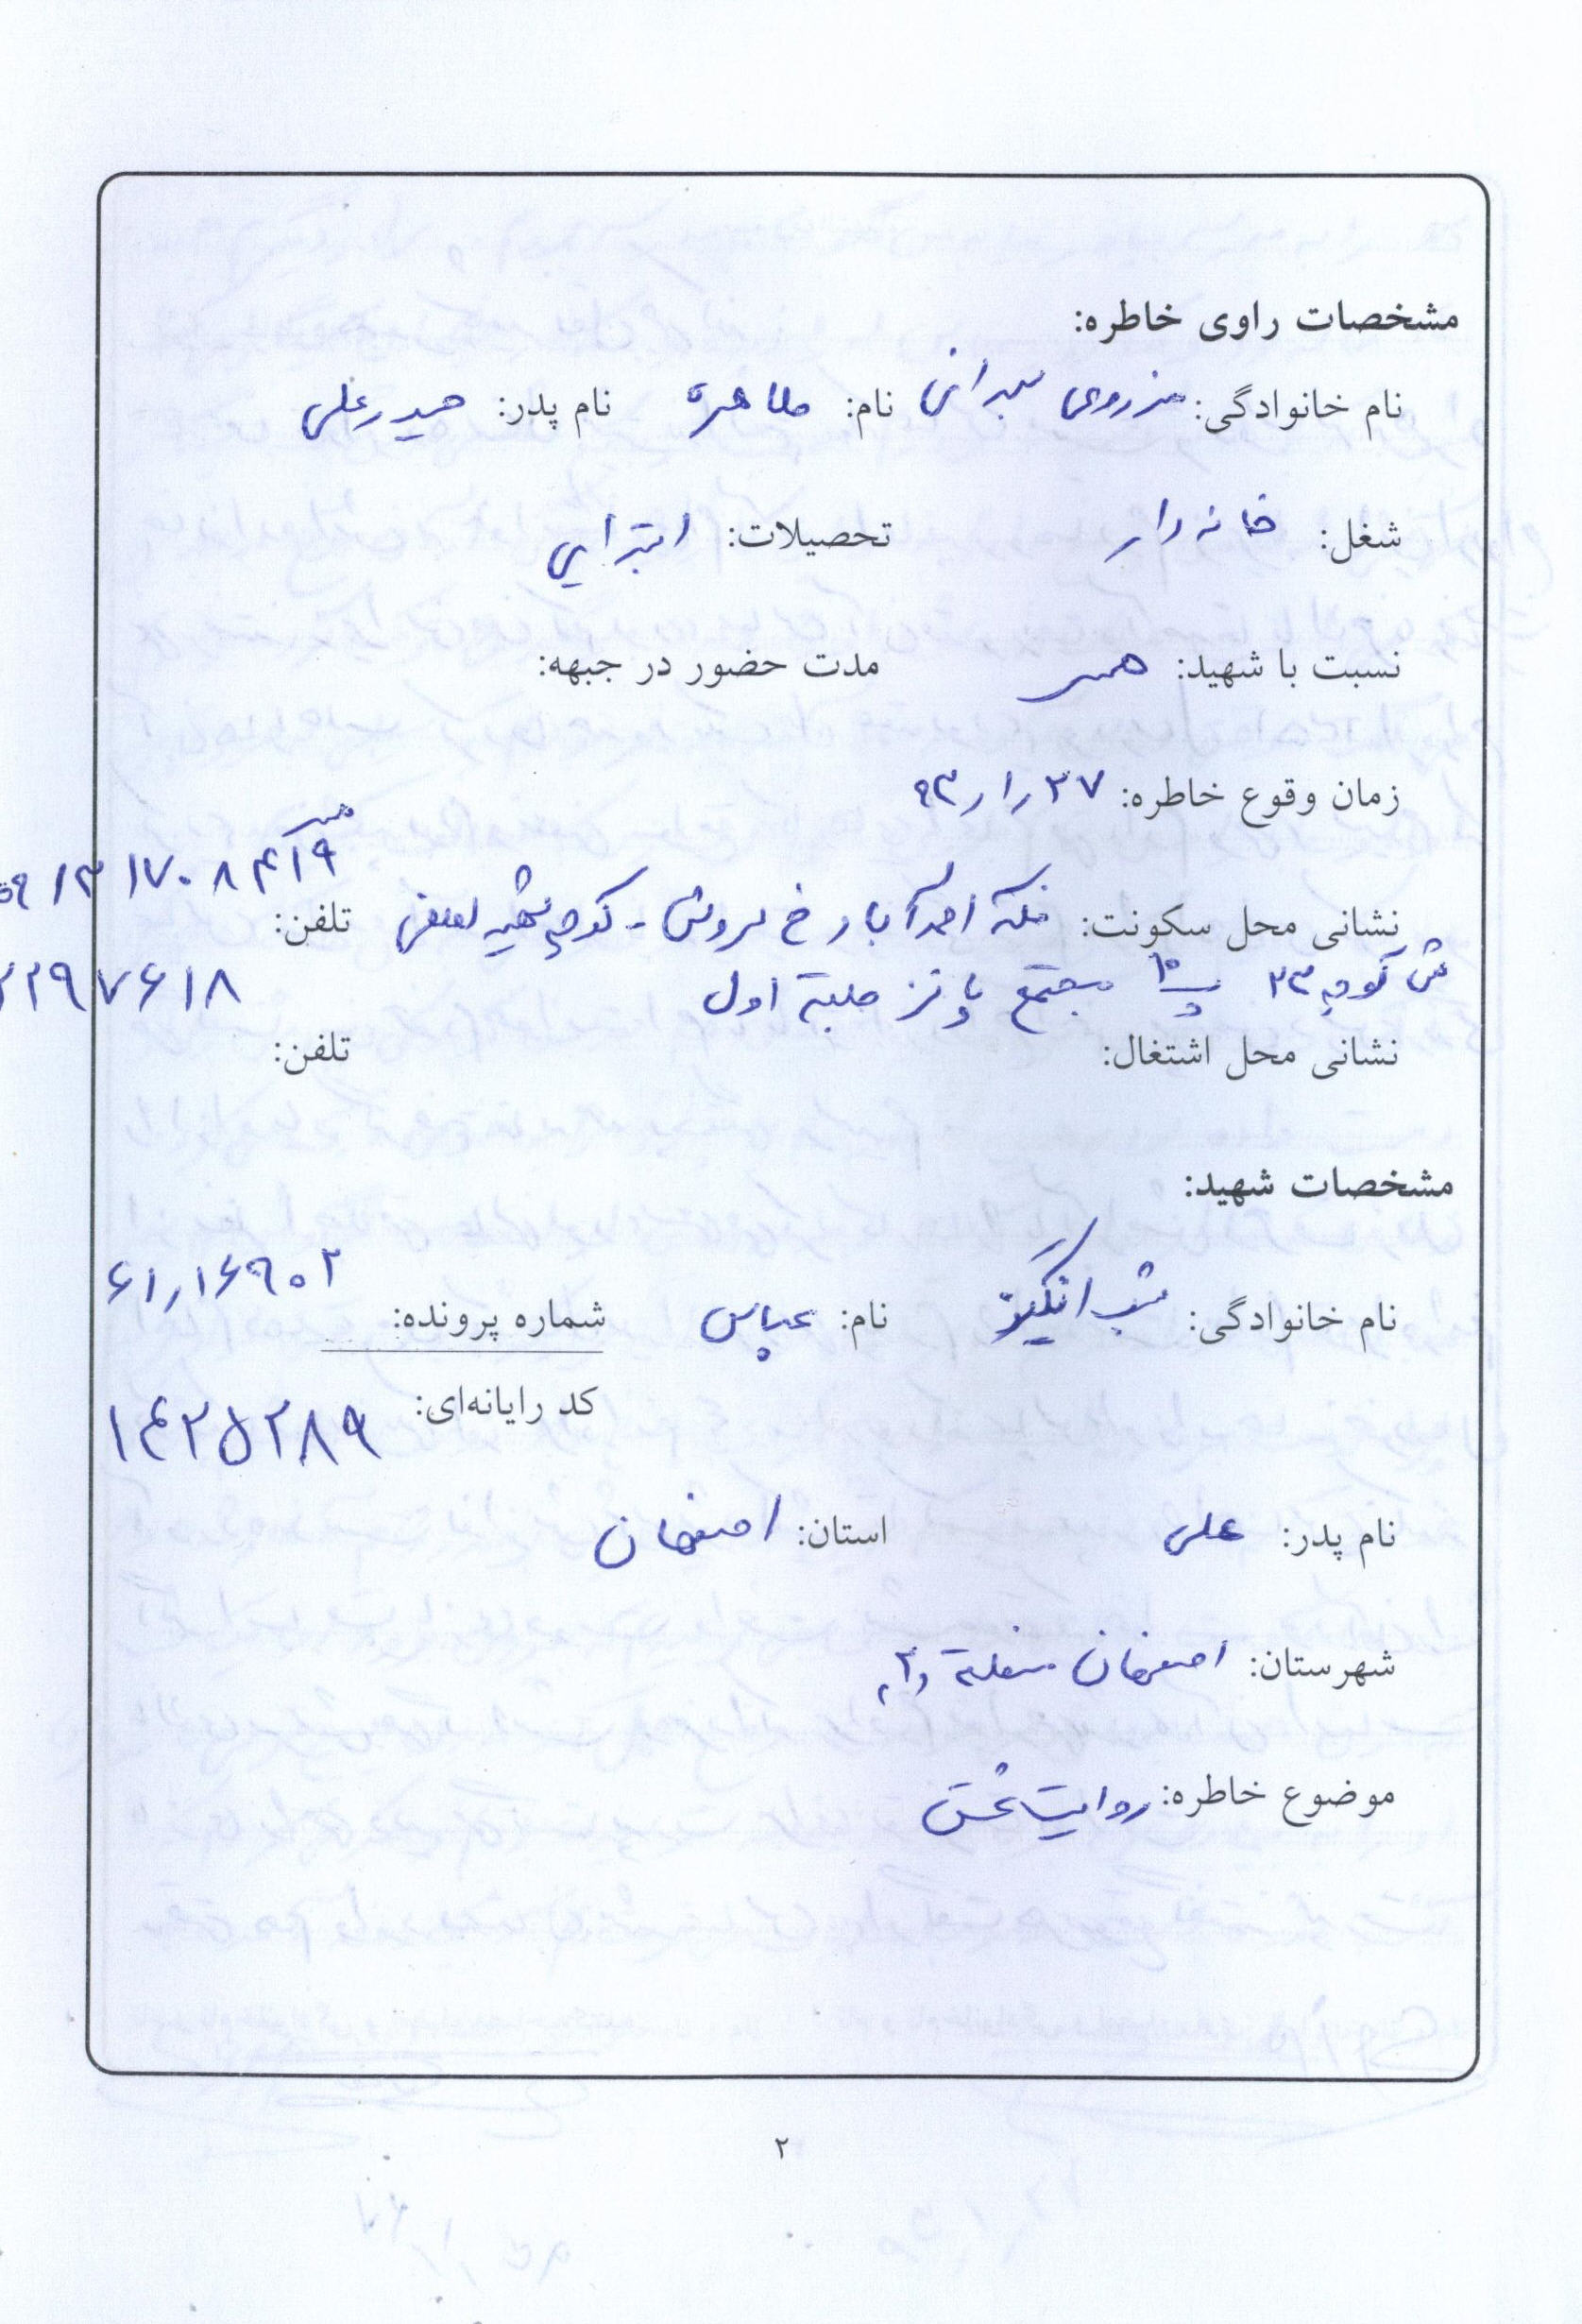 مشخصات راوی خاطره:
نام خانوادگی: نام: طاهره نام پدر: حیدرعلی
شغل: خانه دار تحصیلات: ابتدایی
نسبت با شهید: همسر مدت حضور در جبهه:
زمان وقوع خاطره: ۹۳/۱/۲۷
نشانی محل سکونت: فلکه احمدآباد خ سروش - کوچه شهید تلفن:
کوچه ۲۳ مجتمع طبقه اول ۲۲۹۷۶۱۸
نشانی محل اشتغال: تلفن:
مشخصات شهید:
نام خانوادگی: شب انگیز نام: عباس شماره پرونده: ۶۱/۱۶۹۰۲
کد رایانه‌ای: ۱۴۲۵۲۸۹
نام پدر: علی استان: اصفهان
شهرستان: اصفهان منطقه ۲
موضوع خاطره: روایت عشق
۲